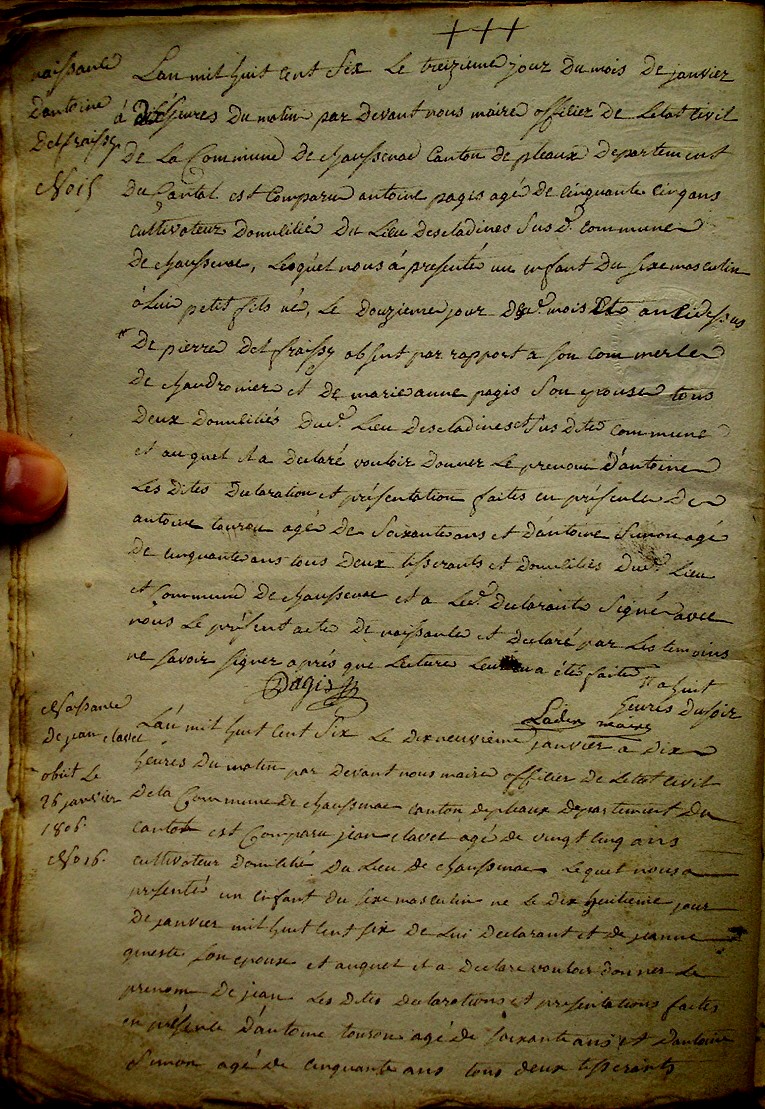 +++
naissance
d'antoine
Delfraissy
No 15
L'an mil huit cent Six Le treizieme jour du mois de janvier
à dix heures du matin par devant nous maire officier de Letat Civil
de La Commune de chaussenac Canton de pleaux Departement
du Cantal est Comparu antoine pagis agé de cinquante cinq ans
cultivateur Domicilié du Lieu Descladines Susd.e commune
de chaussenac, Lequel nous à presenté un enfant du sexe masculin
à Lui petit fils né, Le douzieme jour du mois et an cidessus
" De pierre Delfraissy absent par rapport a son commerce
de chaudronier et de marie anne pagis Son epouse tous
deux domiciliés dud. Lieu Descladines et Sus dite commune
et auquel il a declaré vouloir donner Le prenom d'antoine
Les dites declaration et présentation faites en présence de
antoine tourou agé de Soixante ans et d'antoine Simon agé
de cinquante ans tous deux tisserants et domiciliés dud. Lieu
et Commune de chaussenac et a Led. declarant Signé avec
nous Le présent acte de naissance et declaré par Les temoins
ne savoir signer aprés que Lecture Leur en a été faite
" a huit
heures du soir
Pagis
Laden maire
Naissance
De jean clavet
obiit Le
26 janvier
1806.
No 16.
L'an mil huit cent Six Le dix neuvième janvier a dix
heures du matin par devant nous maire officier de Letat civil
de la Commune de chaussenac canton de pleaux departement du
cantal est Comparu jean clavet agé de vingt cinq ans
cultivateur domicilié du Lieu de chaussenac Lequel nous a
presenté un enfant du sexe masculin né le dix huitieme jour
de janvier mil huit cent six de Lui declarant et de jeanne
gineste son epouse et auquel il a declaré vouloir donner Le
prenom de jean Les dites declarations et presentations faites
en présence d'antoine tourou agé de soixante ans et d'antoine
Simon agé de cinquante ans tous deux tisserants